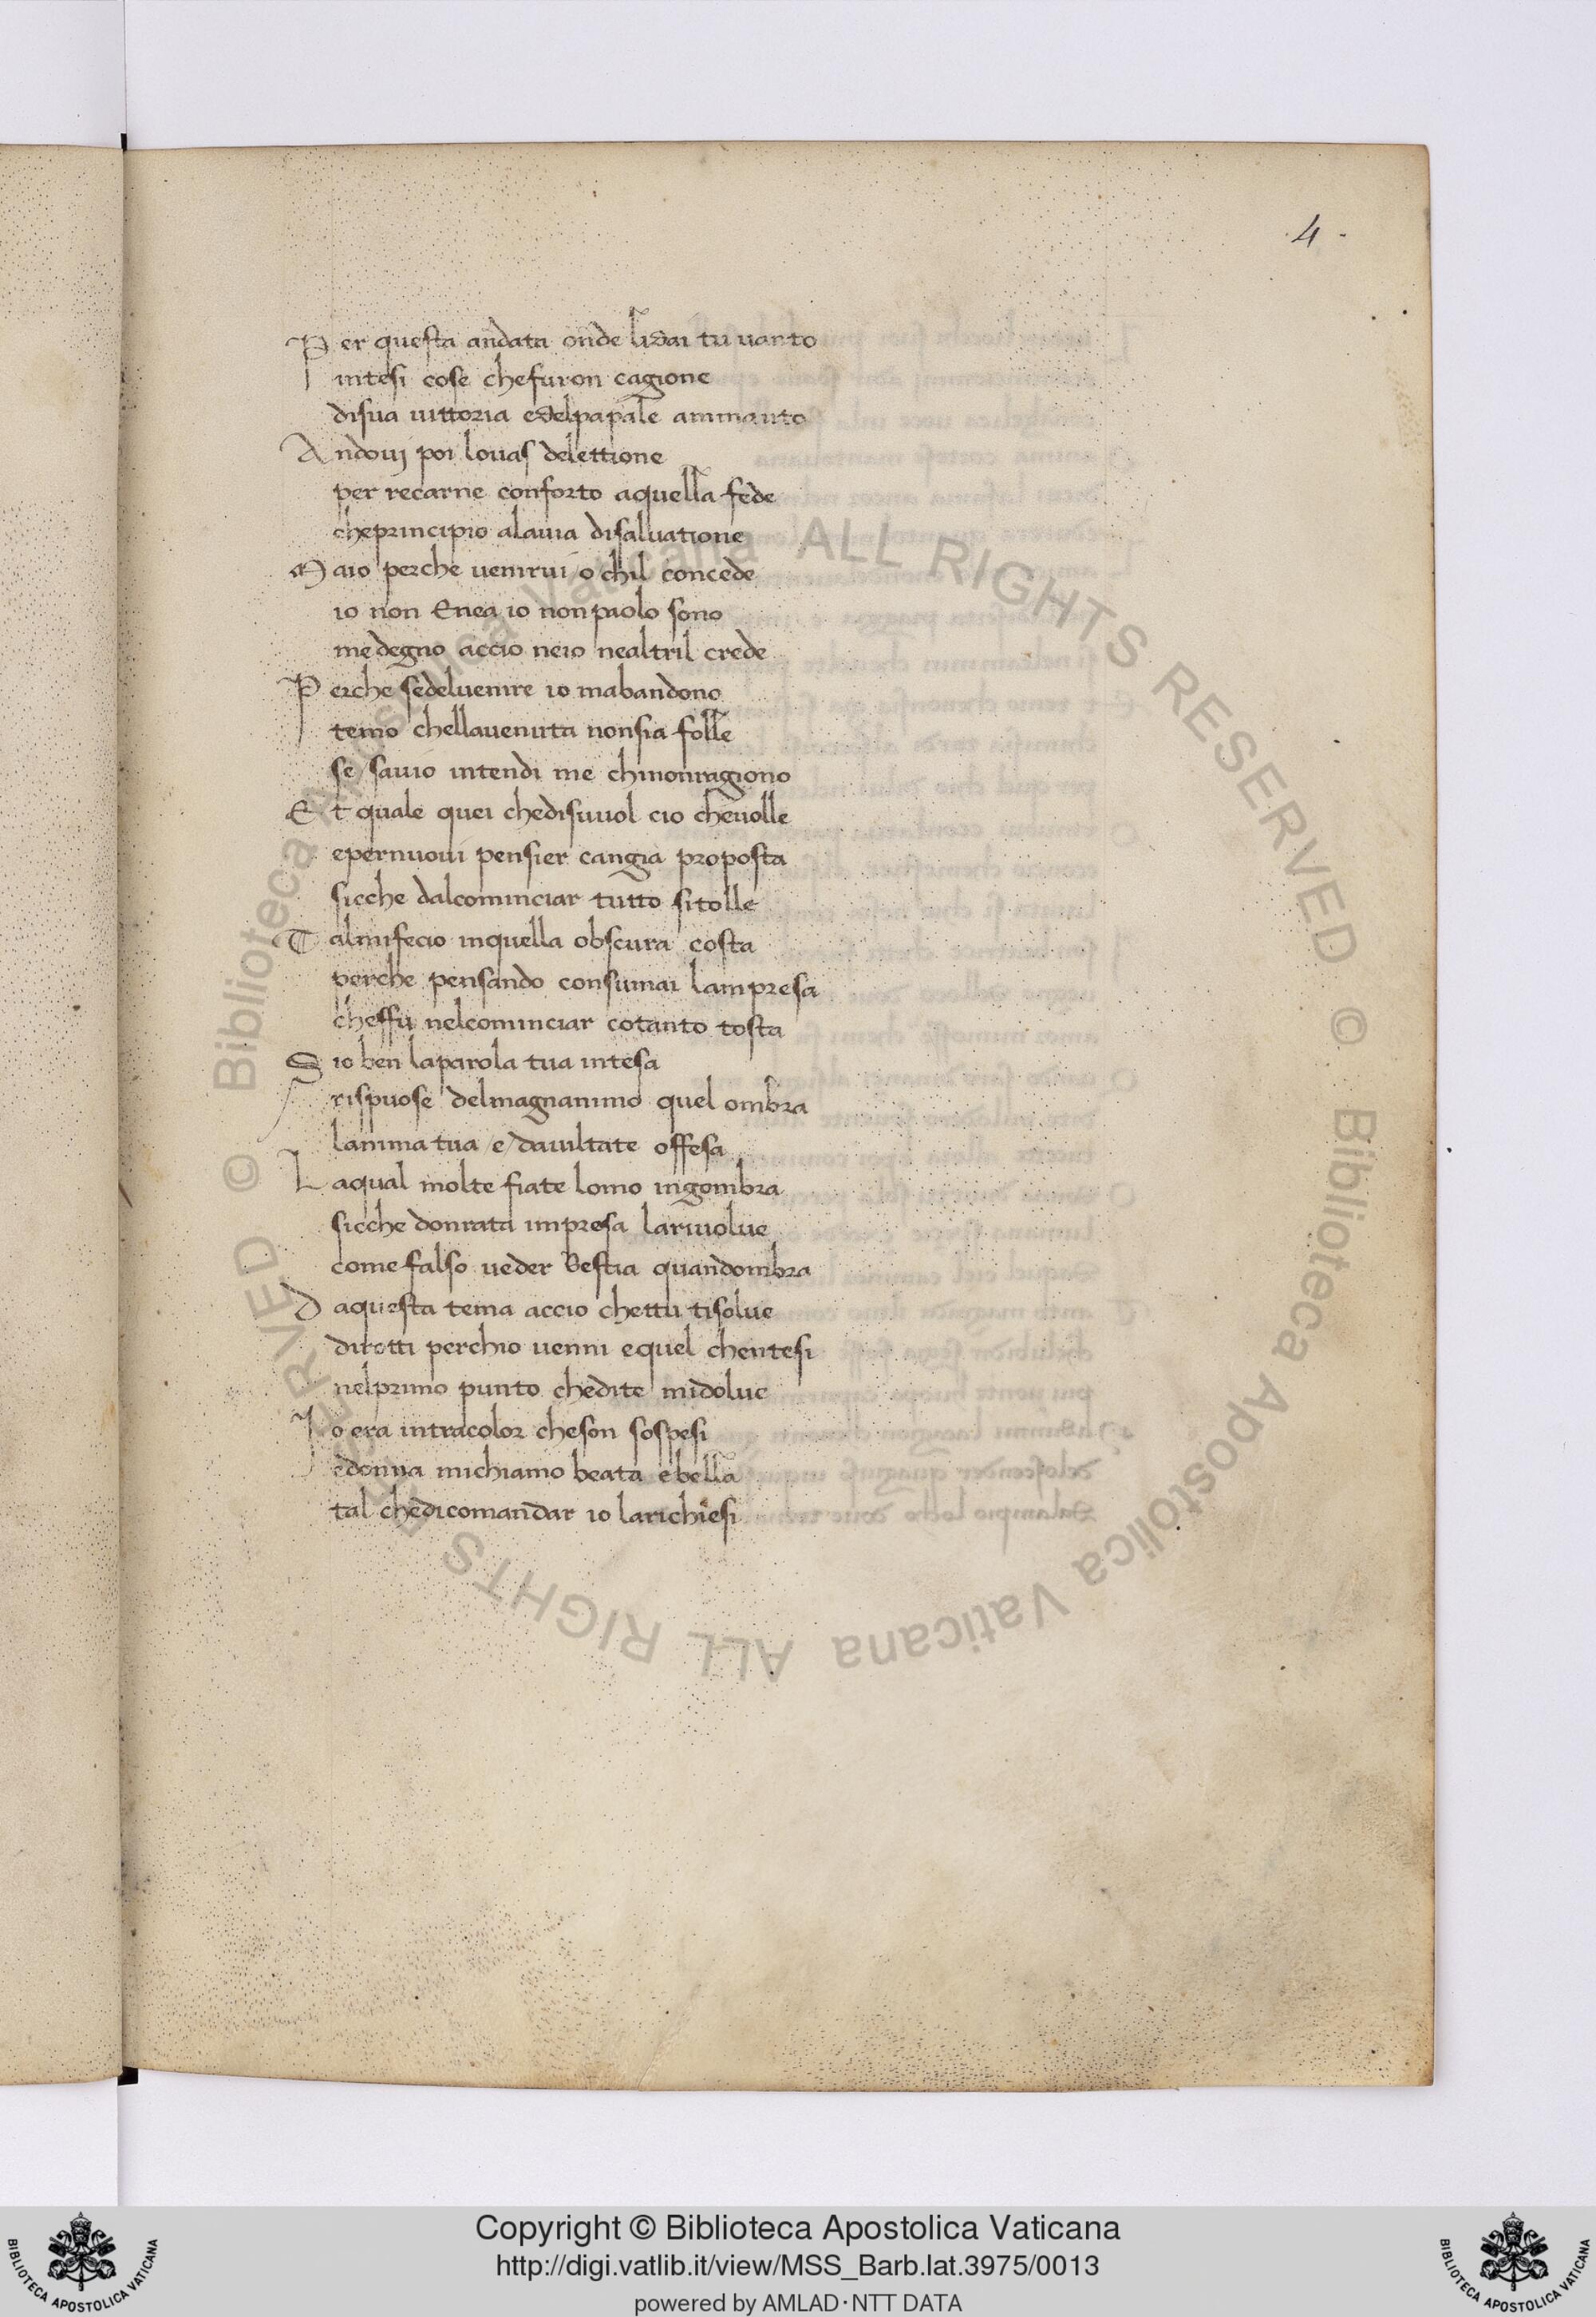 4
Per questa andata onde lidai tu vanto
intesi cose chefuron cagione
disua uittoria edelpapale ammanto
Andovi poi louas delettione
per recarne conforto aquella fede
cheprincipio alauia disaluatione
Maio perche uenirui / o chil concede
io non Enea io non paolo sono
me degno accio neio nealtril crede
Perche sedeluenire io mabandono
temo chellauenuta nonsia folle
se / sauio intendi me chinonragiono
Et quale quei chedisuuol cio cheuolle
epernuoui pensier cangia proposta
sicche dalcominciar tutto sitolle
Talmifecio inquella obscura costa
perche pensando consumai lampresa
cheffu nelcominciar cotanto tosta
Sio ben laparola tua intesa
rispuose delmagnanimo quel ombra
lanima tua / e / dauiltate offesa
Laqual molte fiate lomo ingombra
sicche donrata impresa lariuolue
come falso ueder bestia quandombra
Daquesta tema accio chettu tisolue
dirotti perchio uenni equel chentesi
nelprimo punto chedite midolue
Io era intracolor cheson sospesi
edonna michiamo beata ebella
tal chedicomandar io larichiesi
© Biblioteca Apostolica Vaticana ALL RIGHTS RESERVED © Biblioteca Apostolica Vaticana ALL RIGHTS RESERVED
Copyright © Biblioteca Apostolica Vaticana
http://digi.vatlib.it/view/MSS_Barb.lat.3975/0013
powered by AMLAD·NTT DATA
BIBLIOTECA APOSTOLICA VATICANA
BIBLIOTECA APOSTOLICA VATICANA